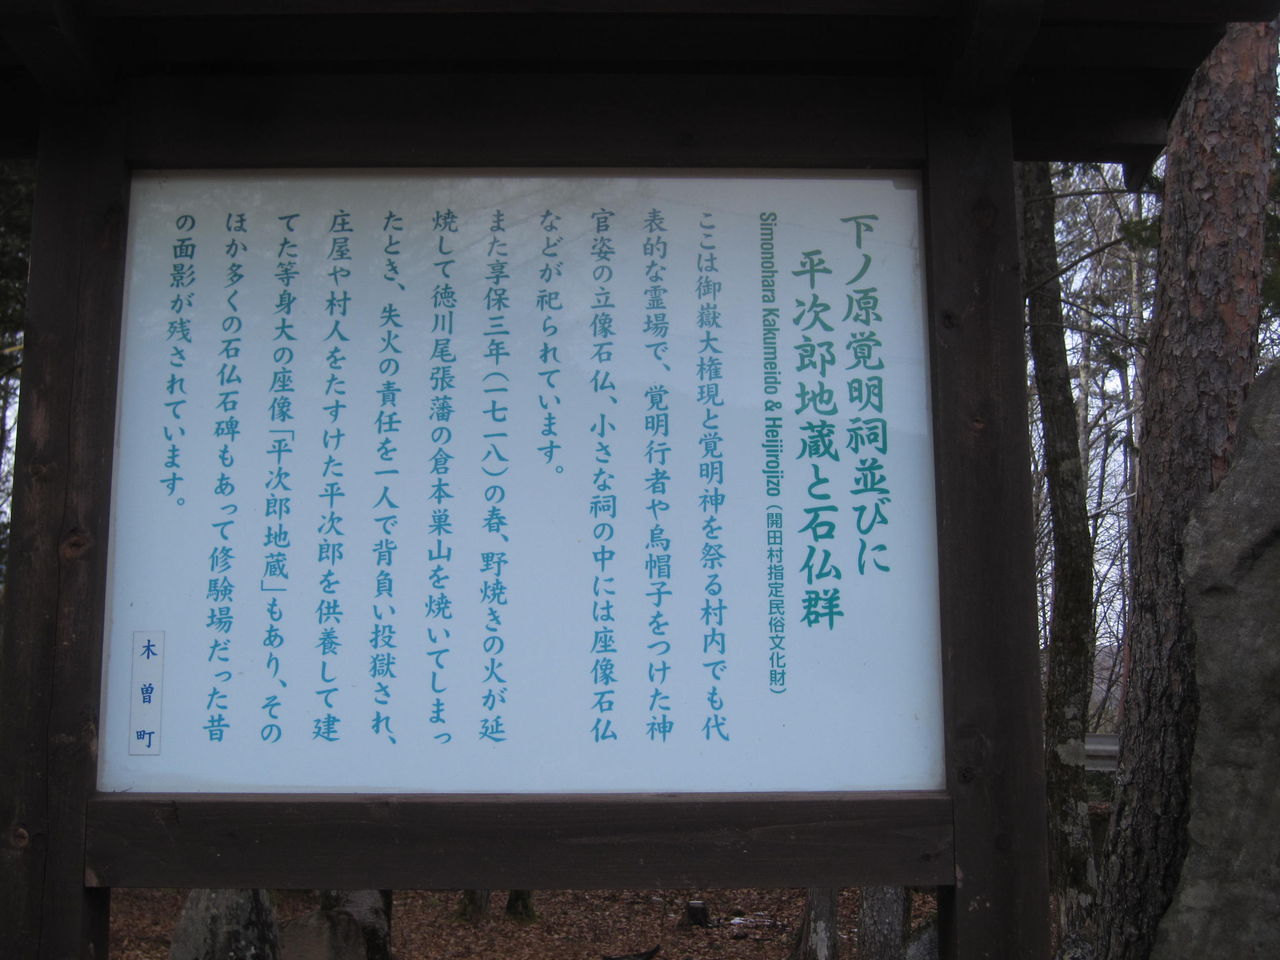 下ノ原覚明祠並びに
平次郎地蔵と石仏群
Simonohara Kakumeido & Heijirojizo（開田村指定民俗文化財）
ここは御嶽大権現と覚明神を祭る村内でも代
表的な霊場で、覚明行者や烏帽子をつけた神
官姿の立像石仏、小さな祠の中には座像石仏
などが祀られています。
また享保三年（一七一八）の春、野焼きの火が延
焼して徳川尾張藩の倉本巣山を焼いてしまっ
たとき、失火の責任を一人で背負い投獄され、
庄屋や村人をたすけた平次郎を供養して建
てた等身大の座像「平次郎地蔵」もあり、その
ほか多くの石仏石碑もあって修験場だった昔
の面影が残されています。
木曽町